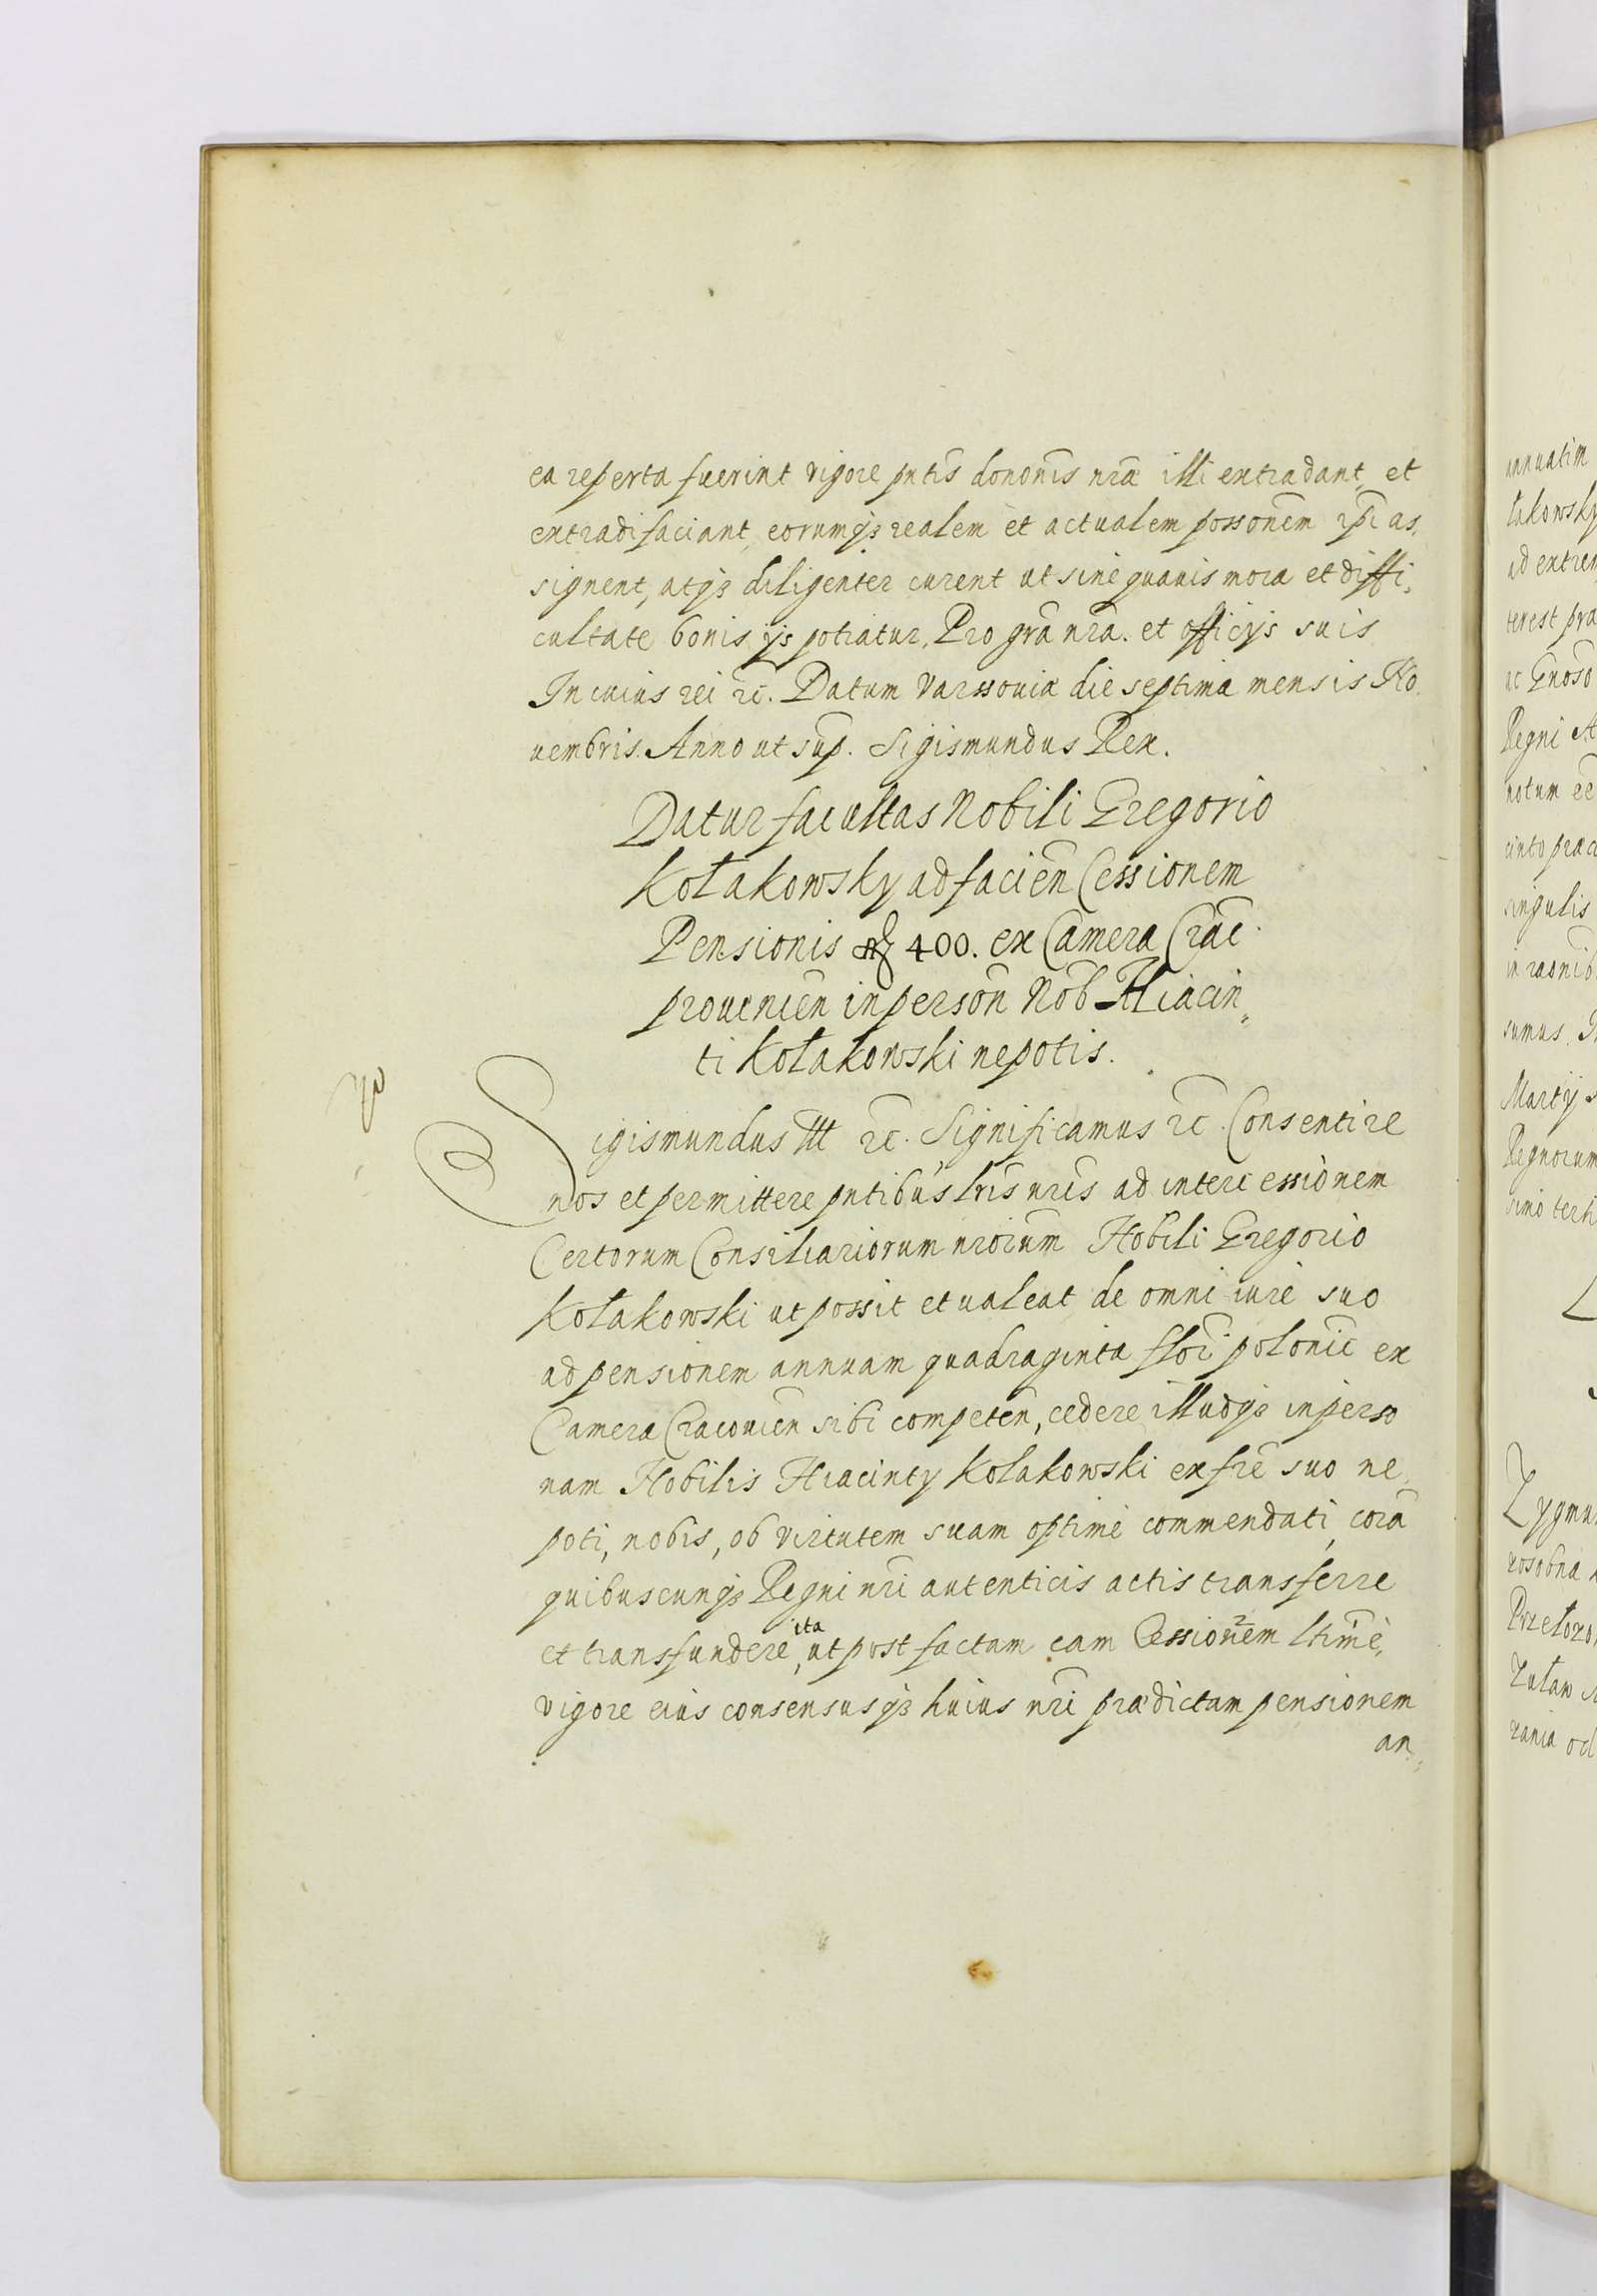 ea reperta fuerint vigore pntis dononis nrae illi extradant, et
extradi faciant, eorumq3 realem et actualem possonem ipi as,
signent, atq3 diligenter curent ut sine quavis mora et diffi,
cultate bonis ijs potiatur. Pro gra nra. et officijs suis
In cuius rei rc. Datum Varssoviae die septima mensis No,
uembris. Anno ut sup. Sigismundus Rex.
Datur facultas Nobili Gregorio
Kołakowsky ad facien Cessionem
Pensionis 400. ex Camera Crac.
prouenien in person Nob Hiacin,,
ti Kołakowski nepotis.
Sigismundus III rc. Significamus rc. Consentire
nos et permittere pntibus lris nris ad intercessionem
Certorum Consiliariorum nrorum Nobili Gregorio
Kołakowski ut possit et ualeat de omni iure suo
ad pensionem annuam quadraginta flor polonic ex
Camera Cracouien sibi competen, cedere, illudq3 in perso
nam Nobilis Hiacinty Kołakowski ex fre suo ne,
poti, nobis, ob virtutem suam optime commendati, cora
quibuscunq3 Regni nri autenticis actis transferre
et transfundere, ita ut post factam eam Cessionem ltime,
vigore eius consensusq3 huius nri praedictam pensionem
an,,
annuatim
łakowsky
ad extrem
terest prae
ac Gnoso
Regni
notum ee
cinto
singulis
sumus.
Martij
Regnorum
simo
Zygmun
Zuław